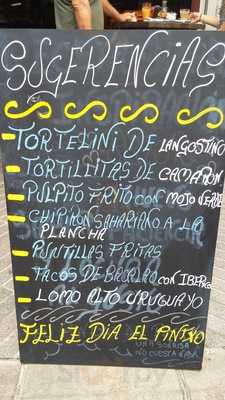 SUGERENCIAS
TORTELINI DE LANGOSTINO
TORTILLITAS DE CAMARON
PULPITO FRITO CON MOJO VERDE
CHIPIRON SAHARIANO A LA
PLANCHA
PUNTILLAS FRITAS
TACOS DE BACALAO CON IBERICO
LOMO ALTO URUGUAYO
FELIZ DIA EL PININO
UNA SONRISA
NO CUESTA NADA